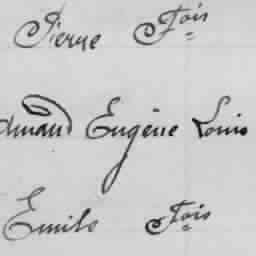 Pierre Fois
Amand Eugène Louis
Emile Fois